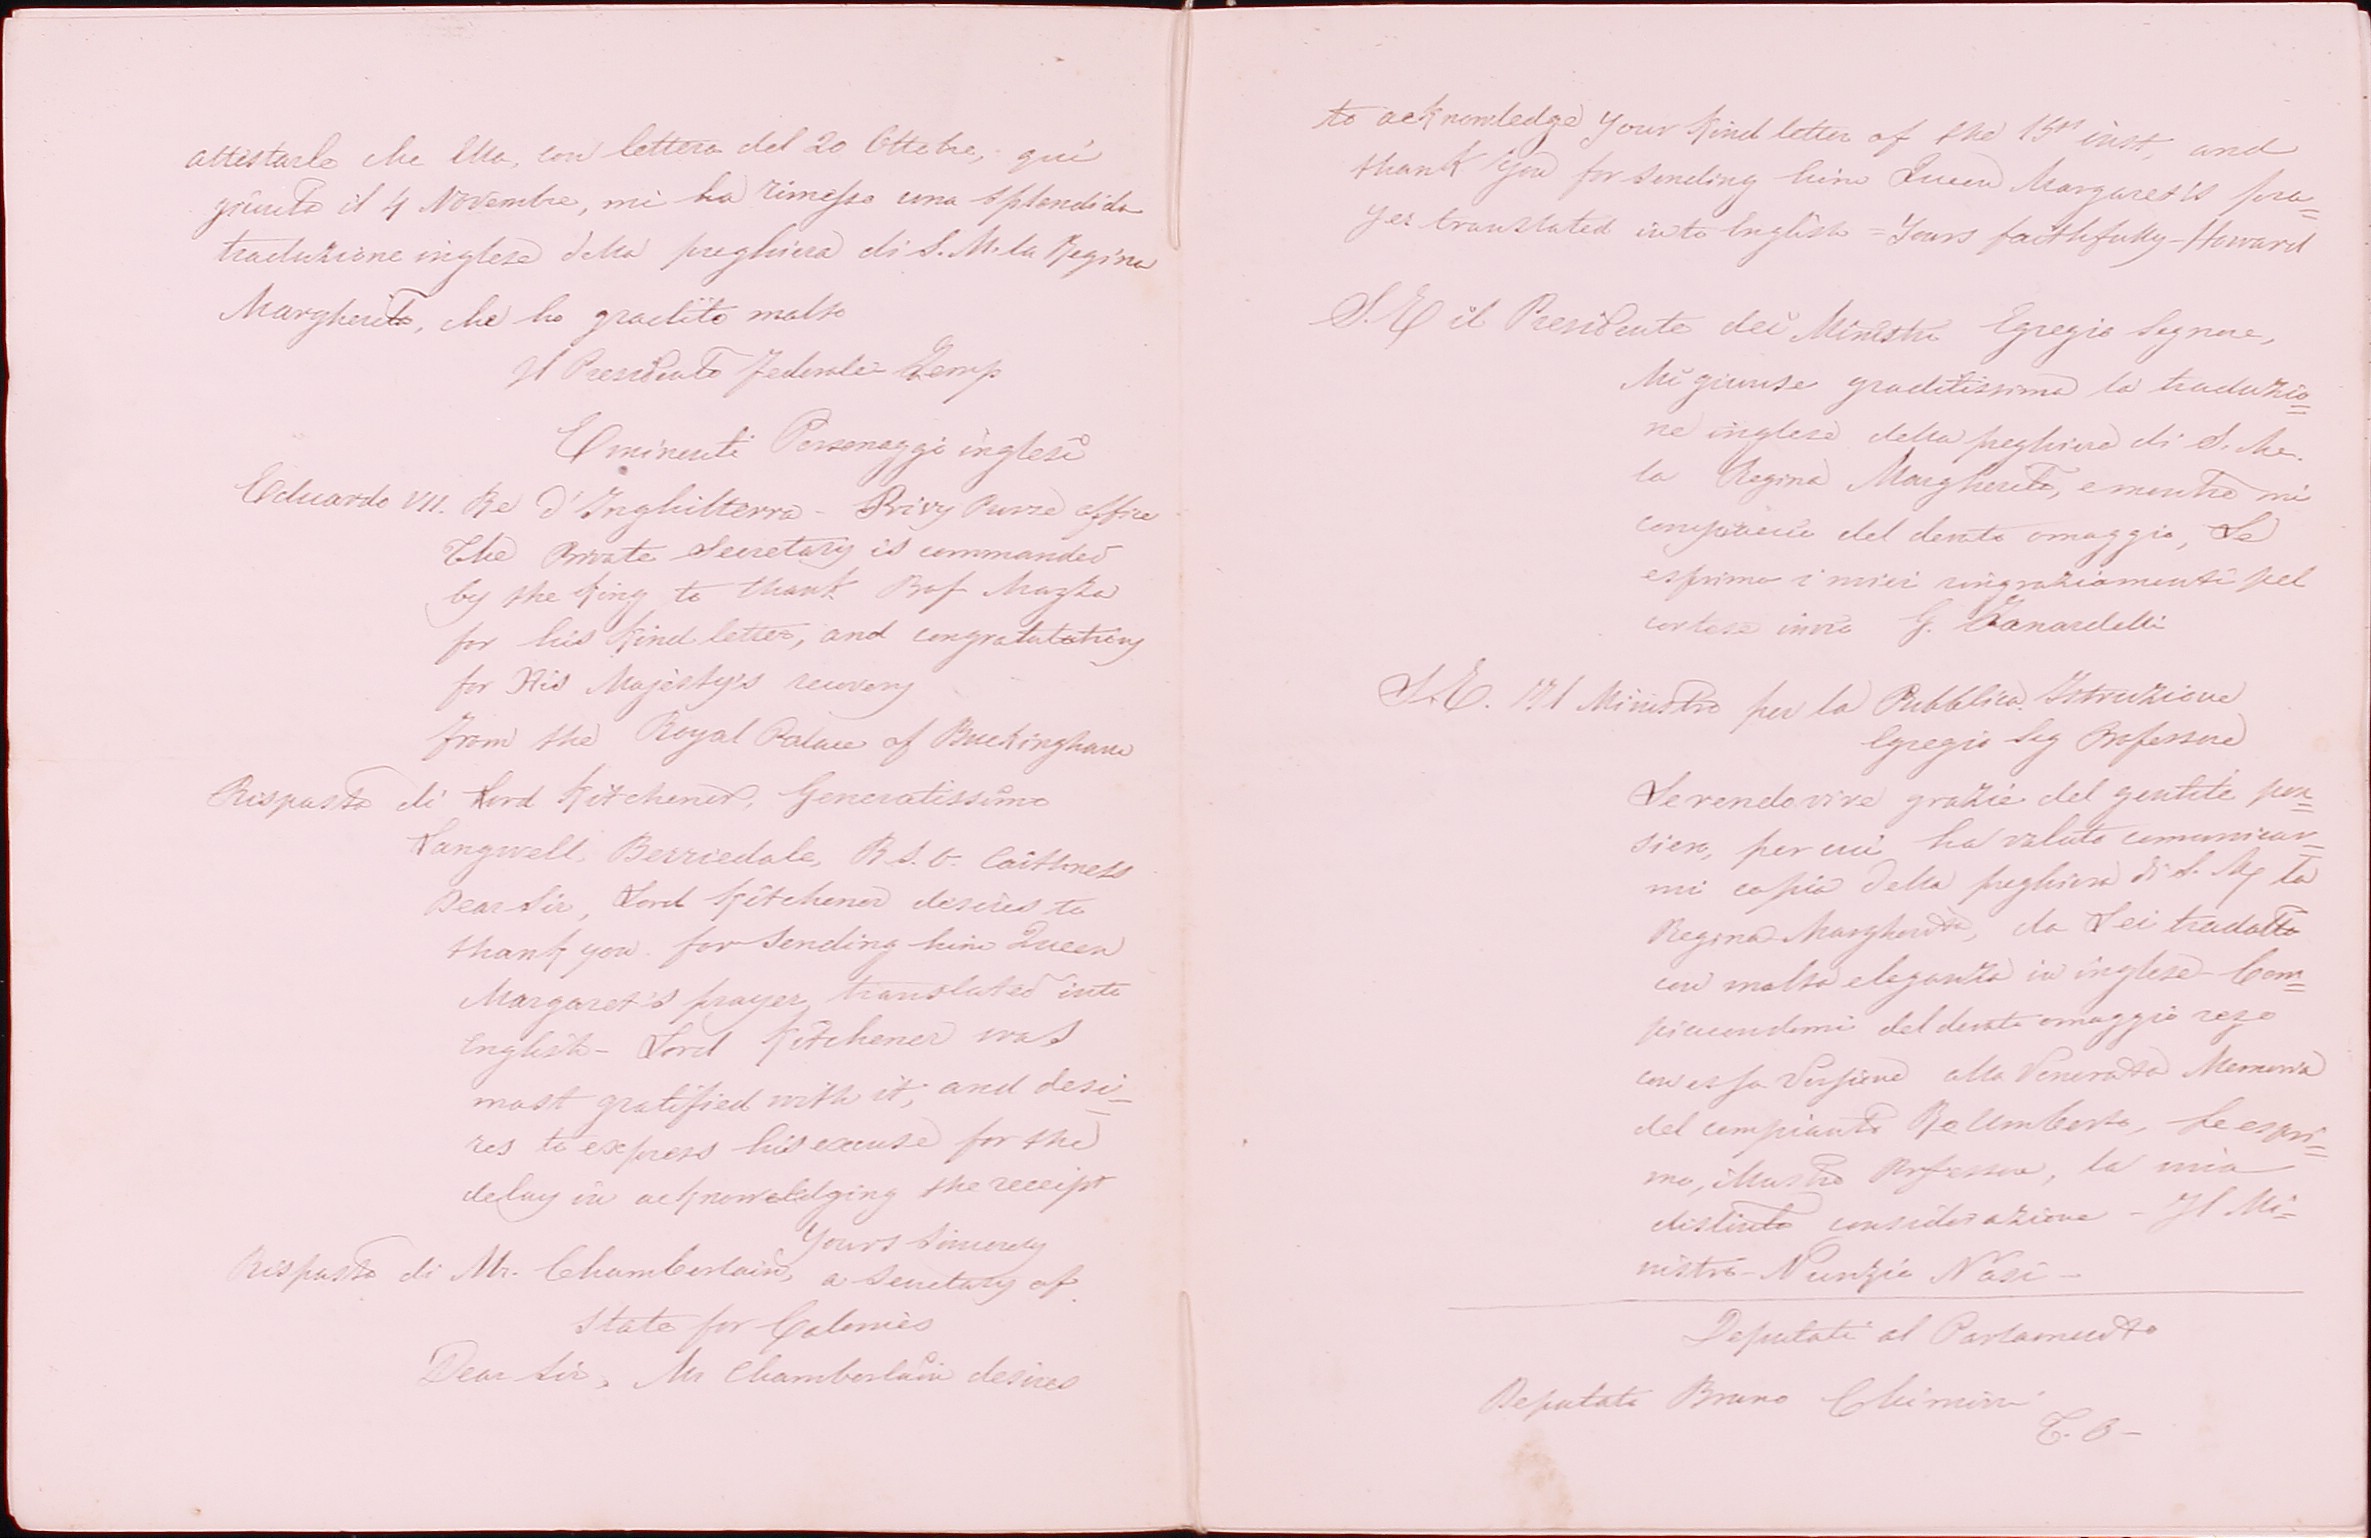 attestarle che Ella, con lettera del 20 Ottobre, qui
giunta il 4 Novembre, mi ha rimesso una splendida
traduzione inglese della preghiera di S. M. la Regina
Margherita, che ho gradito molto
Il Presidente Federale Zemp
Eminenti Personaggi inglesi
Eduardo VII. Re d'Inghilterra - Privy Purse office
The Private Secretary is commanded
by the King to thank Prof Mazza
for his kind letter, and congratulations
for His Majesty's recovery
from the Royal Palace of Buckingham
Risposta di Lord Kitchener, Generalissimo
Langwell, Berriedale, R. S. O. Caithness
Dear Sir, Lord Kitchener desires to
thank you for sending him Queen
Margaret's prayer, translated into
English - Lord Kitchener was
most gratified with it, and desi-
res to express his excuse for the
delay in acknowledging the receipt
Yours Sincerely
Risposta di Mr. Chamberlain, a Secretary of
State for Colonies
Dear Sir, Mr Chamberlain desires
to acknowledge your kind letter of the 15th inst, and
thank you for sending him Queen Margaret's pra=
yer translated into English = Yours faithfully - Howard
S. E il Presidente dei Ministri Egregio Signore,
Mi giunse graditissima la traduzio=
ne inglese della preghiera di S. M.
la Regina Margherita, e mentre mi
compiaccio del devoto omaggio, Le
esprimo i miei ringraziamenti pel
cortese invio G. Zanardelli
S. E. Il Ministro per la Pubblica Istruzione
Egregio Sig Professore
Le rendo vive grazie del gentile pen=
siero, per cui ha voluto comunicar=
mi copia della preghiera di S. M. la
Regina Margherita, da Lei tradotta
con molta eleganza in inglese - Com=
piacendomi del devoto omaggio reso
con essa Versione alla Venerata Memoria
del compianto Re Umberto, Le espri=
mo, illustre Professore, la mia
distinta considerazione - Il Mi=
nistro - Nunzio Nasi -
Deputati al Parlamento
Deputato Bruno Chimirri
C. B -